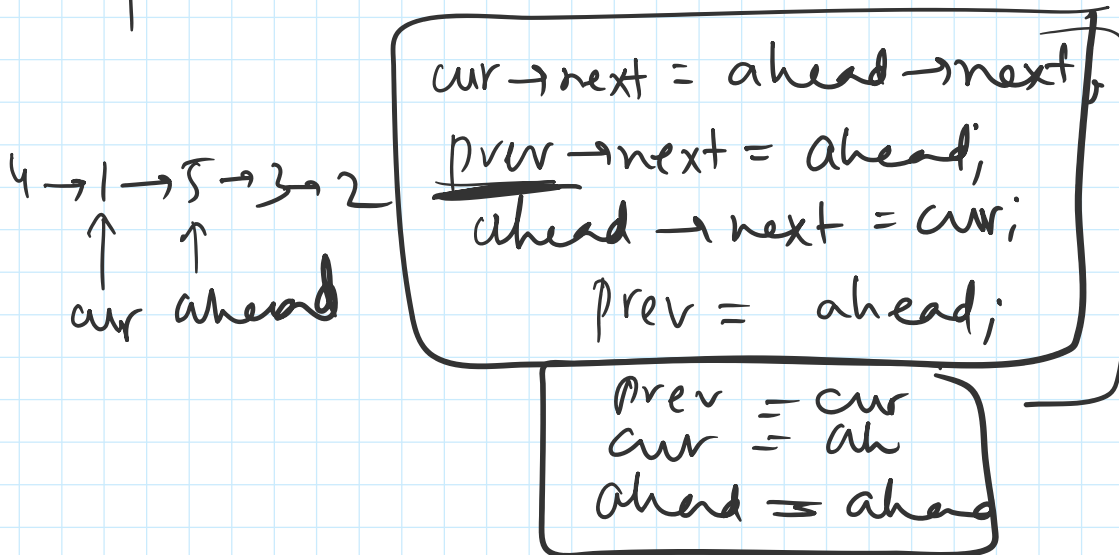 4 → 1 → 5 → 3 → 2
↑ ↑
cur ahead
cur → next = ahead → next;
prev → next = ahead;
ahead → next = cur;
prev = ahead;
prev = cur
cur = ah
ahead = ahead